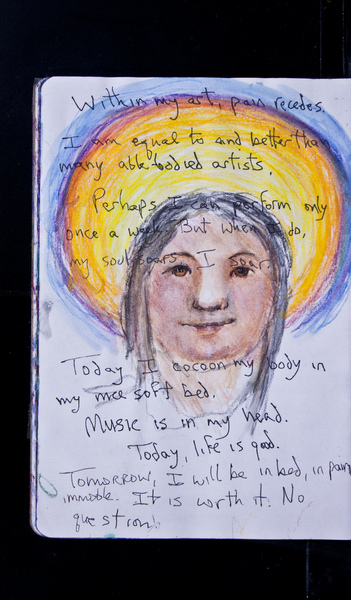 Within my art, pain recedes.
I am equal to and better than
many able-bodied artists.
Perhaps I can perform only
once a week. But when I do,
my soul soars. I soar.
Today I cocoon my body in
my nice soft bed.
Music is in my head.
Today, life is good.
Tomorrow, I will be in bed, in pain
immobile. It is worth it. No
question!